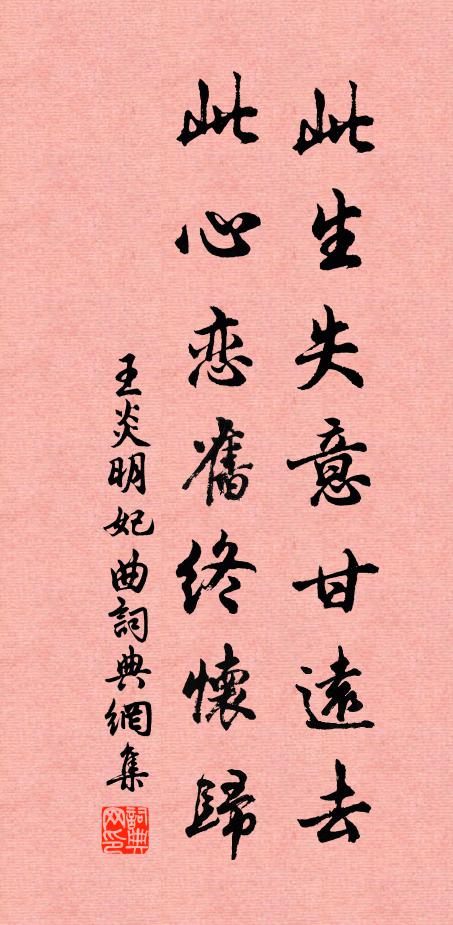 此生失意甘遠去
此心恋舊終懷歸
王炎明妃曲詞典網集
詞典网印